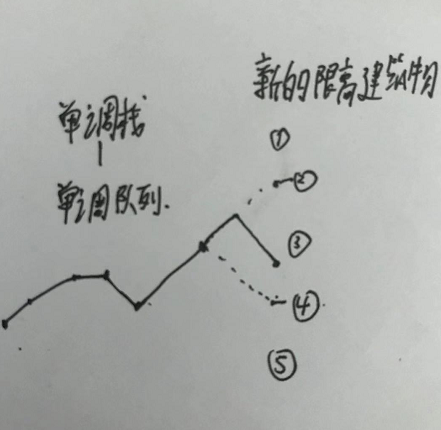 新的限高建筑物
单调栈
单调队列.
①
②
③
④
⑤